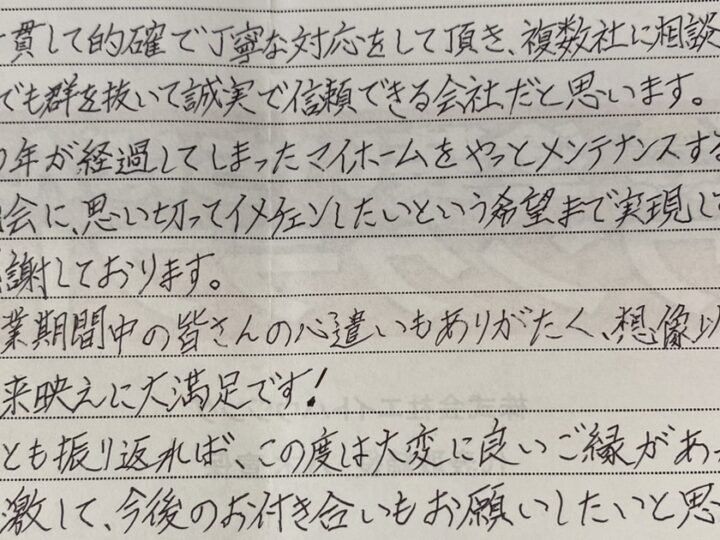 貫して的確で丁寧な対応をして頂き、複数社に相談
でも群を抜いて誠実で信頼できる会社だと思います。
年が経過してしまったマイホームをやっとメンテナンスする
会に、思い切ってイメチェンしたいという希望まで実現して
謝しております。
業期間中の皆さんの心遣いもありがたく、想像以
来映えに大満足です!
とも振り返れば、この度は大変に良いご縁があっ
激して、今後のお付き合いもお願いしたいと思